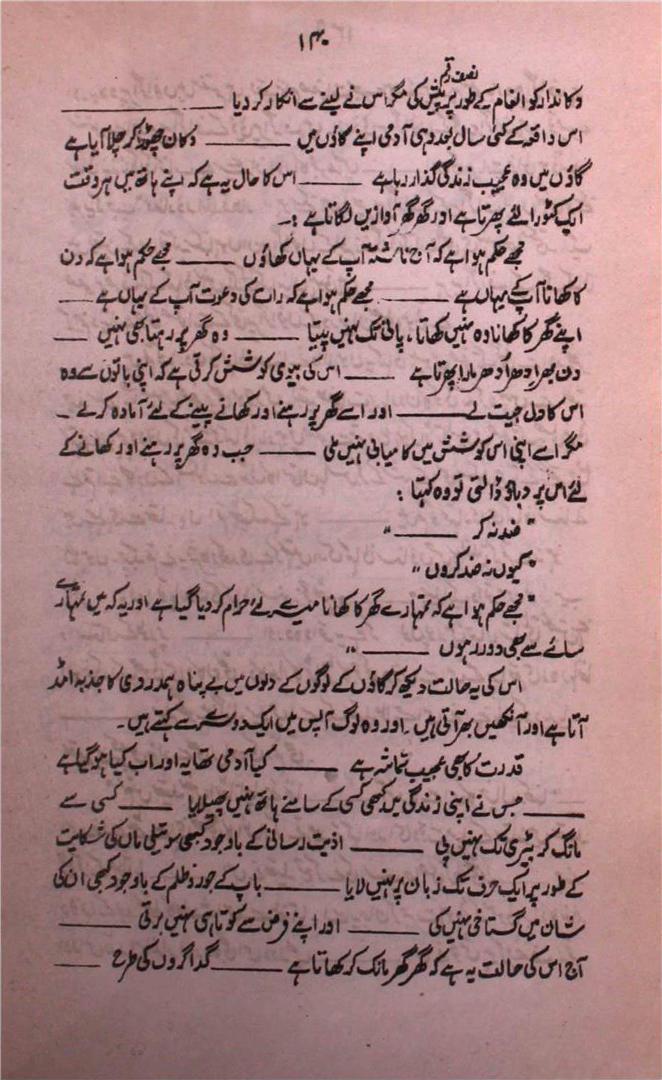 ۱۴۰
نصف رقم
دکاندار کو انعام کے طور پر پیش کی مگر اس نے لینے سے انکار کر دیا ـــــــــ
اس واقعہ کے کئی سال بعد وہی آدمی اپنے گاؤں میں ـــــــــ دکان چھوڑ کر چلا آیا ہے
گاؤں میں وہ عجیب زندگی گذار رہا ہے ـــــــــ اس کا حال یہ ہے کہ اپنے ہاتھ میں ہر وقت
ایک کٹورا لئے پھرتا ہے اور گھر گھر آوازیں لگاتا ہے :۔
مجھے حکم ہوا ہے کہ آج ناشتہ آپ کے یہاں کھاؤں ـــــــــ مجھے حکم ہوا ہے کہ دن
کا کھانا آپکے یہاں ہے ـــــــــ مجھے حکم ہوا ہے کہ رات کی دعوت آپ کے یہاں ہے ـــــــــ
اپنے گھر کا کھانا وہ نہیں کھاتا، پانی تک نہیں پیتا ـــــــــ وہ گھر پر رہتا بھی نہیں ـــــــــ
دن بھر ادھر اُدھر مارا پھرتا ہے ـــــــــ اس کی بیوی کوشش کرتی ہے کہ اپنی باتوں سے وہ
اس کا دل جیت لے ـــــــــ اور اسے گھر پر رہنے اور کھانے پینے کے لئے آمادہ کرلے ۔
مگر اسے اپنی اس کوشش میں کامیابی نہیں ملی ـــــــــ جب وہ گھر پر رہنے اور کھانے کے
لئے اس پر دباؤ ڈالتی تو وہ کہتا :
"ضد نہ کر ـــــــــ"
"کیوں نہ ضد کروں"
"مجھے حکم ہوا ہے کہ تمہارے گھر کا کھانا میرے لئے حرام کر دیا گیا ہے اور یہ کہ میں تمہارے
سائے سے بھی دور رہوں ـــــــــ"
اس کی یہ حالت دیکھ کر گاؤں کے لوگوں کے دلوں میں بے پناہ ہمدردی کا جذبہ امڈ
آتا ہے اور آنکھیں بھر آتی ہیں ۔ اور وہ لوگ آپس میں ایک دوسرے سے کہتے ہیں ۔
قدرت کا بھی عجیب تماشہ ہے ـــــــــ کیا آدمی تھا یہ اور اب کیا ہو گیا ہے
ـــــــــ جس نے اپنی زندگی میں کبھی کسی کے سامنے ہاتھ نہیں پھیلایا ـــــــــ کسی سے
مانگ کر بیڑی تک نہیں پی ـــــــــ اذیت رسانی کے باوجود کبھی سوتیلی ماں کی شکایت
کے طور پر ایک حرف تک زبان پر نہیں لایا ـــــــــ باپ کے جور و ظلم کے باوجود کبھی ان کی
شان میں گستاخی نہیں کی ـــــــــ اور اپنے فرض سے کوتاہی نہیں برتی ـــــــــ
آج اس کی حالت یہ ہے کہ گھر گھر مانگ کر کھاتا ہے ـــــــــ گداگروں کی طرح ـــــــــ